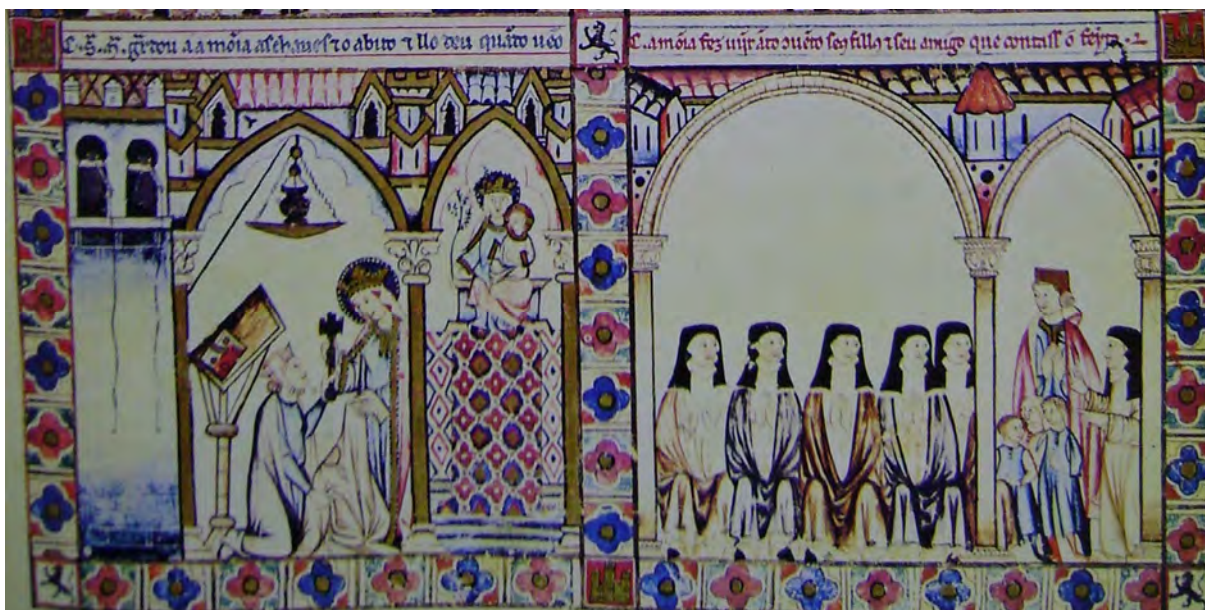 C. S̃. M̃. gr̃dou a a mõia as chaues ⁊ o abito ⁊ llo deu quãto uẽo
C. a mõia fez uĩjr ãto ꝯuẽto seꝯ fillꝯ ⁊ seu amigo que contass õ feyto